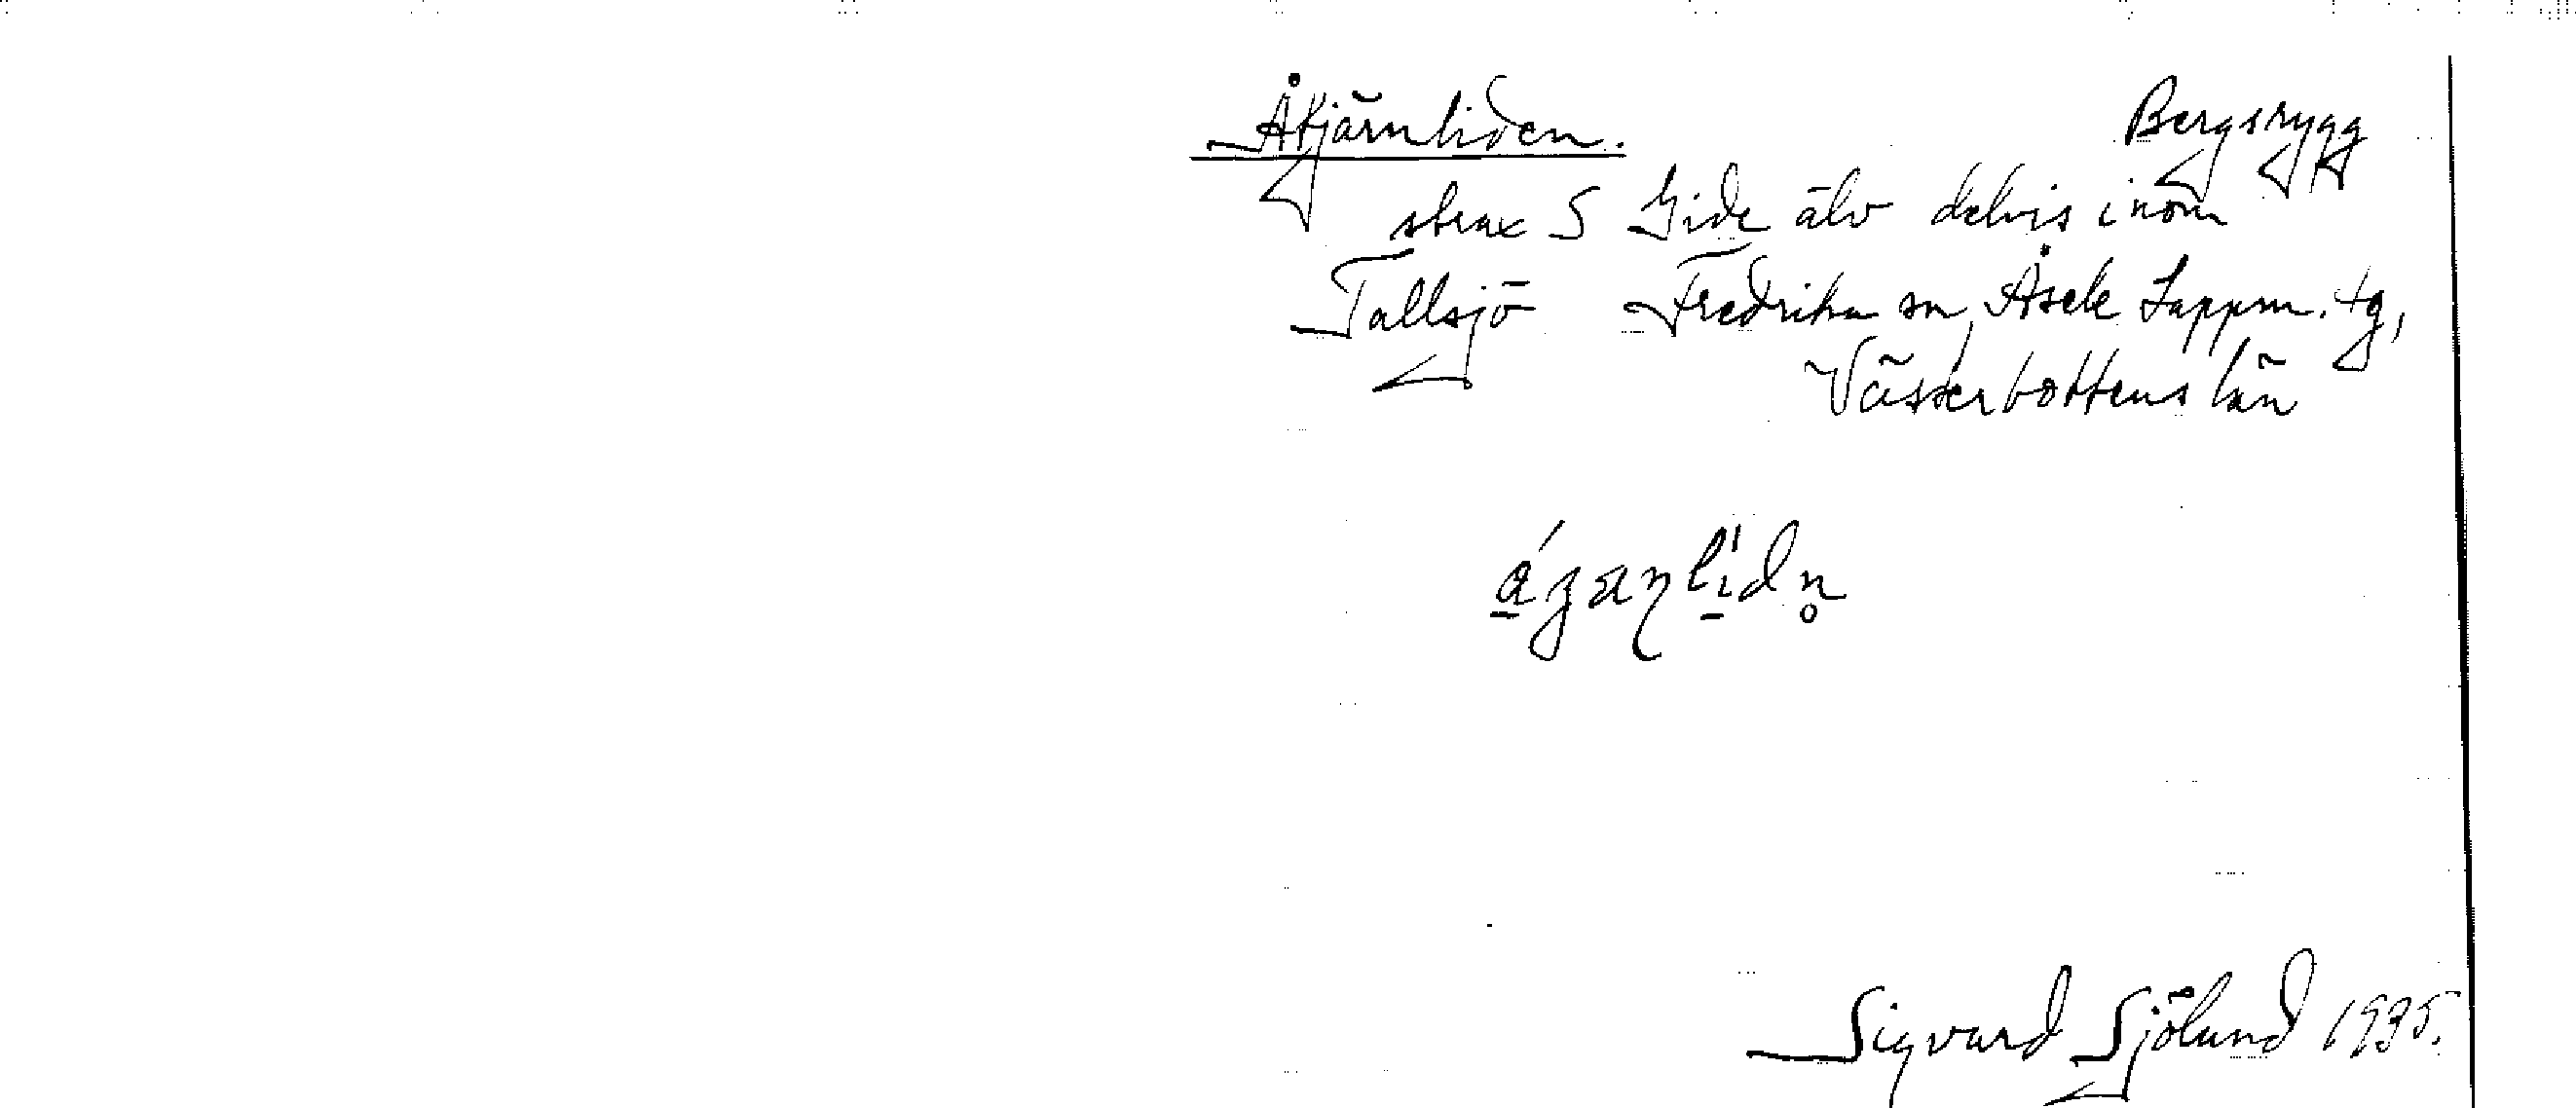 Åtjärnliden. Bergsrygg
strax S Gide älv delvis inom
Tallsjö Fredrika sn, Åsele Lappm. tg,
Västerbottens län
Sigvard Sjölund 1935.